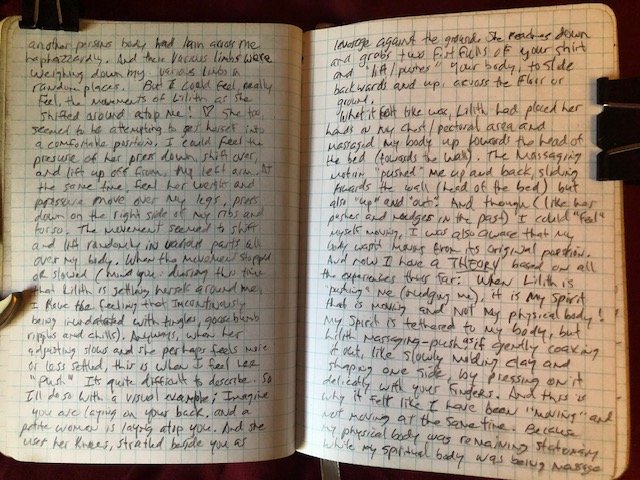 another persons body had lain across me
haphazzardly. And there various limbs were
weighing down my various limbs in
random places. But I could feel, really
feel, the movements of Lilith as she
shifted around atop me! ♡ She too,
seemed to be attempting to get herself into
a comfortable position. I could feel the
presure of her press down, shift over,
and lift up off from my left arm. At
the same time, feel her weight and
pressure move over my legs, press
down on the right side of my ribs and
torso. The movement seemed to shift
and lift randomly in various parts all
over my body. When the movement stopped
or slowed (mind you: during this time
that Lilith is settling herself around me,
I have the feeling that Im continuously
being inundated with tingles, goosebumb
ripples and chills). Anyways, when her
adjusting slows and she perhaps feels more
or less settled, this is when I feel her
"push". It quite difficult to describe. So
I'll do so with a visual example; Imagine
you are laying on your back, and a
petite woman is laying atop you. And she
uses her knees, stratled beside you as
leverage against the ground. She reaches down
and grabs two fist fulls of your shirt
and "lift/pushes" your body, to slide
backwards and up, across the floor or
ground.
What it felt like was, Lilith had placed her
hands on my chest/pectoral area and
massaged my body up towards the head of
the bed (towards the wall). The massaging
motion "pushed" me up and back, sliding
towards the wall (head of the bed) but
also "up" and "out". And though (like her
pushes and nudges in the past) I could "feel"
myself moving, I was also aware that my
body wasnt moving from its original position.
And now I have a THEORY based on all
the experiences thus far: When Lilith is
"pushing" me (nudging me), it is my spirit
that is moving and Not my physical body!
My spirit is tethered to my body, but
Lilith massaging-push as if gently coaxing
it out, like slowly molding clay and
shaping one side by pressing on it
delicatly with your fingers. And this is
why it felt like I have been "moving" and
not moving at the same time. Because
my physical body was remaining stationary
while my spiritual body was being massage